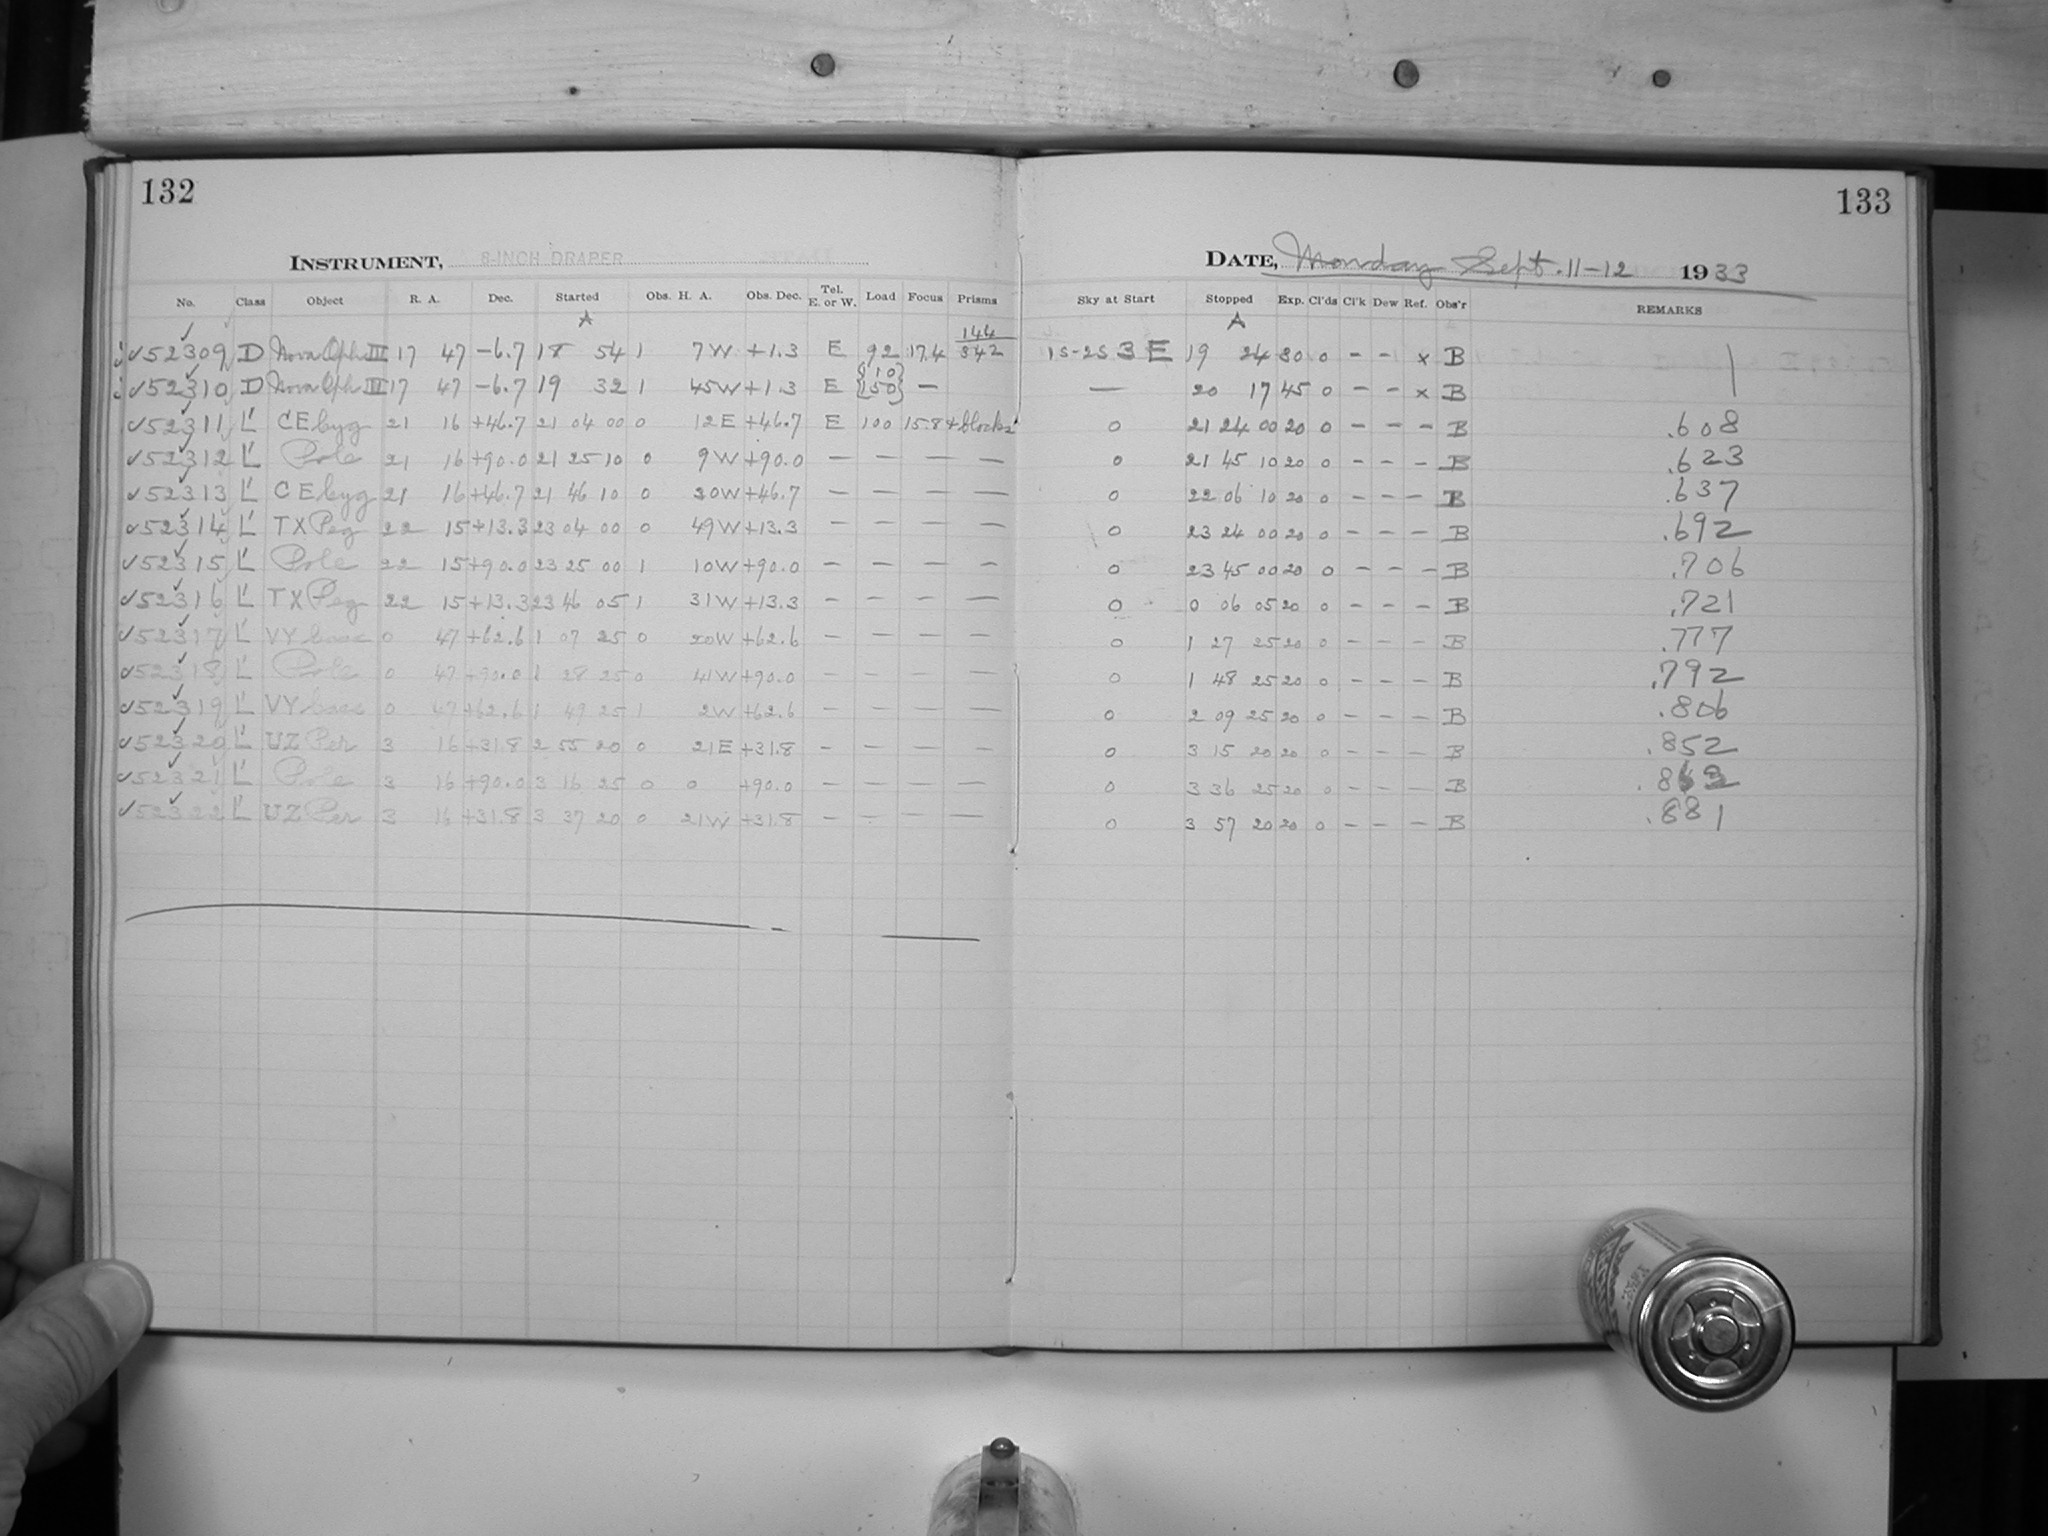 132
133
INSTRUMENT, 8-INCH DRAPER
DATE, Monday Sept. 11-12 1933
No. Class Object R. A. Dec. Started Obs. H. A. Obs. Dec. Tel. E. or W. Load Focus Prisms Sky at Start Stopped Exp. Cl'ds Cl'k Dew Ref. Obs'r REMARKS
A A
144
✓52309 D Nova Oph III 17 47 -6.7 18 54 1 7W +1.3 E 92 17.4 342 1S-2S 3 E 19 24 30 0 - - x B
{10}
✓52310 D Nova Oph III 17 47 -6.7 19 32 1 45W +1.3 E {150} — — 20 17 45 0 - - x B
✓52311 L' CE Cyg 21 16 +46.7 21 04 00 0 12E +46.7 E 100 15.8 + blocks 0 21 24 00 20 0 - - - B .608
✓52312 L' Pole 21 16 +90.0 21 25 10 0 9W +90.0 — — — — 0 21 45 10 20 0 - - - B .623
✓52313 L' CE Cyg 21 16 +46.7 21 46 10 0 30W +46.7 — — — — 0 22 06 10 20 0 - - - B .637
✓52314 L' TX Peg 22 15 +13.3 23 04 00 0 49W +13.3 — — — — 0 23 24 00 20 0 - - - B .692
✓52315 L' Pole 22 15 +90.0 23 25 00 1 10W +90.0 — — — — 0 23 45 00 20 0 - - - B .706
✓52316 L' TX Peg 22 15 +13.3 23 46 05 1 31W +13.3 — — — — 0 0 06 05 20 0 - - - B .721
✓52317 L' VY Cass 0 47 +62.6 1 07 25 0 20W +62.6 — — — — 0 1 27 25 20 0 - - - B .777
✓52318 L' Pole 0 47 +90.0 1 28 25 0 41W +90.0 — — — — 0 1 48 25 20 0 - - - B .792
✓52319 L' VY Cass 0 47 +62.6 1 49 25 1 2W +62.6 — — — — 0 2 09 25 20 0 - - - B .806
✓52320 L' UZ Per 3 16 +31.8 2 55 20 0 21E +31.8 — — — — 0 3 15 20 20 0 - - - B .852
✓52321 L' Pole 3 16 +90.0 3 16 25 0 0 +90.0 — — — — 0 3 36 25 20 0 - - - B
✓52322 L' UZ Per 3 16 +31.8 3 37 20 0 21W +31.8 — — — — 0 3 57 20 20 0 - - - B .881